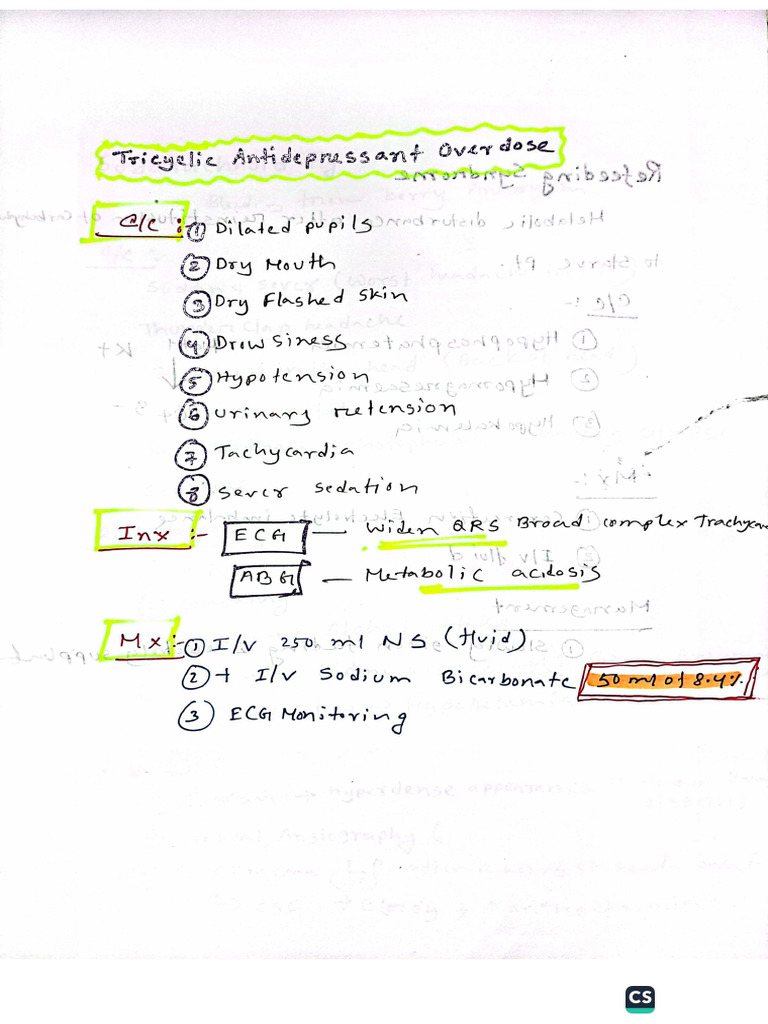 Tricyclic Antidepressant Overdose
C/C :- ① Dilated pupils
② Dry Mouth
③ Dry Flashed Skin
④ Drowsiness
⑤ Hypotension
⑥ Urinary retension
⑦ Tachycardia
⑧ Sever sedation
Inx :- ECG — Widen QRS Broad complex Trachycar
ABG — Metabolic acidosis
Mx :- ① I/v 250 ml NS (fluid)
② + I/v Sodium Bicarbonate 50 ml of 8.4%
③ ECG Monitoring
CS